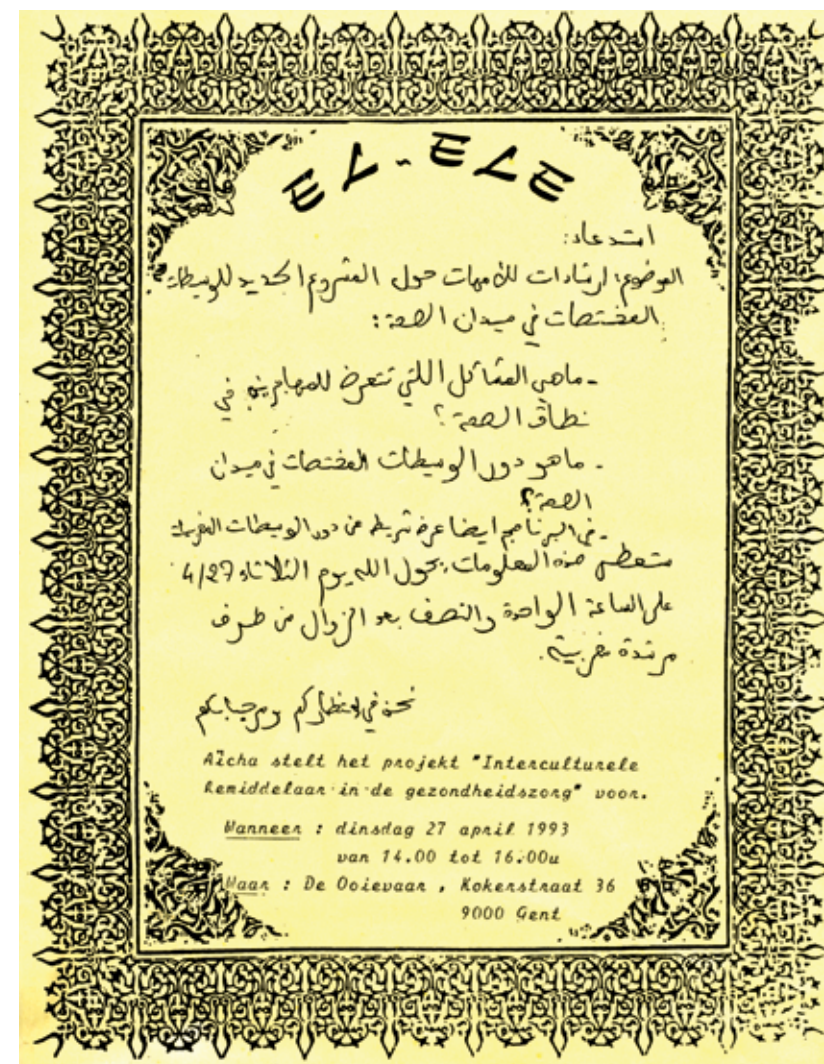 EL-ELE
استدعاء:
الموضوع: ارشادات للأمهات حول المشروع الجديد للوسيطات
المختصات في ميدان الصحة:
- ماهي المشاكل اللتي تتعرض للمهاجرين في
نطاق الصحة؟
- ماهو دور الوسيطات المختصات في ميدان
الصحة؟
- في البرنامج ايضا عرض شريط عن دور الوسيطات
ستعطى هذه المعلومات بحول الله يوم الثلاثاء 4/27
على الساعة الواحدة والنصف بعد الزوال من طرف
مرشدة مغربية.
نحن في إنتظاركم ومرحبا بكم
Aïcha stelt het projekt "Interculturele
bemiddelaar in de gezondheidszorg" voor.
Wanneer : dinsdag 27 april 1993
van 14.00 tot 16.00u
Waar : De Ooievaar , Kokerstraat 36
9000 Gent